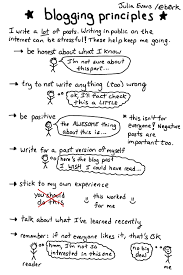 Julia Evans
@b0rk
blogging principles
I write a lot of posts. Writing in public on the
internet can be stressful! These help keep me going.
→ be honest about what I know
I'm not sure about
this part...
→ try to not write anything (too) wrong
ok, I'll fact check
this a LITTLE
→ be positive
the AWESOME thing
about this is...
* this isn't for
everyone! Negative posts
are important
too.
→ write for a past version of myself
here's the blog post
I WISH I could have read...
→ stick to my own experience
you should
do this
this worked
for me
→ talk about what I've learned recently
→ remember: if not everyone likes it, that's OK
hmm, I'm not so
interested in this one
reader
no big
deal!
me